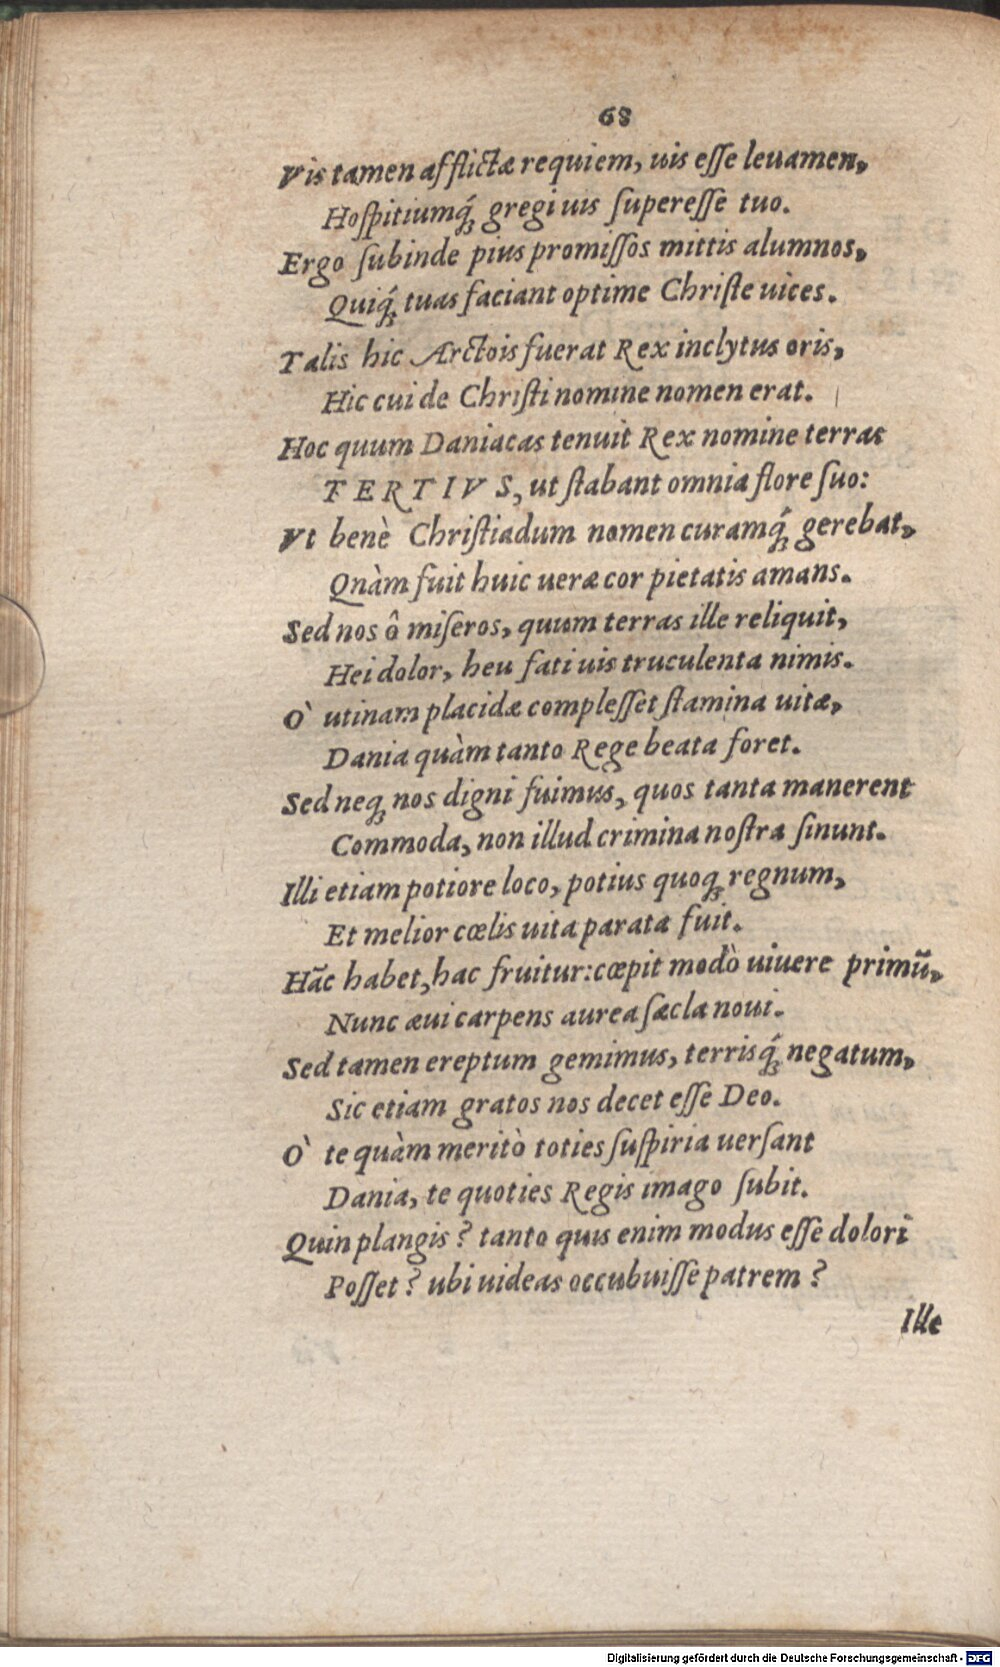 68
Vis tamen afflictæ requiem, uis esse leuamen,
Hospitiumq́; gregi uis superesse tuo.
Ergo subinde pius promissos mittis alumnos,
Quiq́; tuas faciant optime Christe uices.
Talis hic Arctois fuerat Rex inclytus oris,
Hic cui de Christi nomine nomen erat.
Hoc quum Daniacas tenuit Rex nomine terras
TERTIVS, ut stabant omnia flore suo:
Vt benè Christiadum nomen curamq́; gerebat,
Qnàm fuit huic ueræ cor pietatis amans.
Sed nos ô miseros, quum terras ille reliquit,
Hei dolor, heu fati uis truculenta nimis.
O` utinam placidæ complesset stamina uitæ,
Dania quàm tanto Rege beata foret.
Sed neq; nos digni fuimus, quos tanta manerent
Commoda, non illud crimina nostra sinunt.
Illi etiam potiore loco, potius quoq; regnum,
Et melior cœlis uita parata fuit.
Hāc habet, hac fruitur: cœpit modò uiuere primū,
Nunc æui carpens aurea sæcla noui.
Sed tamen ereptum gemimus, terrisq́; negatum,
Sic etiam gratos nos decet esse Deo.
O` te quàm meritò toties suspiria uersant
Dania, te quoties Regis imago subit.
Quin plangis? tanto quis enim modus esse dolori
Posset? ubi uideas occubuisse patrem?
Ille
Digitalisierung gefördert durch die Deutsche Forschungsgemeinschaft - DFG